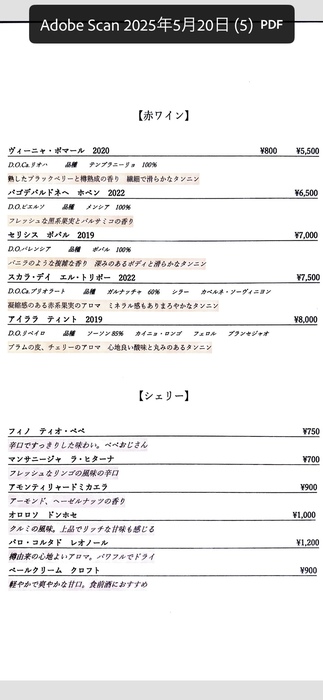 Adobe Scan 2025年5月20日 (5) PDF
【赤ワイン】
ヴィーニャ・ポマール 2020 ¥800 ¥5,500
D.O.Ca.リオハ 品種 テンプラニーリョ 100%
熟したブラックベリーと樽熟成の香り 繊細で滑らかなタンニン
パゴデバルドネヘ ホベン 2022 ¥6,500
D.O.ビエルソ 品種 メンシア 100%
フレッシュな黒系果実とバルサミコの香り
セリシス ボバル 2019 ¥7,000
D.O.バレンシア 品種 ボバル 100%
バニラのような複雑な香り 深みのあるボディと滑らかなタンニン
スカラ・デイ エル・トリポー 2022 ¥7,500
D.O.Ca.プリオラート 品種 ガルナッチャ 60% シラー カベルネ・ソーヴィニヨン
凝縮感のある赤系果実のアロマ ミネラル感もありまろやかなタンニン
アイララ ティント 2019 ¥8,000
D.O.リベイロ 品種 ソーソン85% カイニョ・ロンゴ フェロル ブランセジャオ
プラムの皮、チェリーのアロマ 心地良い酸味と丸みのあるタンニン
【シェリー】
フィノ ティオ・ペペ ¥750
辛口ですっきりした味わい。ペペおじさん
マンサニージャ ラ・ヒターナ ¥700
フレッシュなリンゴの風味の辛口
アモンティリャードミカエラ ¥900
アーモンド、ヘーゼルナッツの香り
オロロソ ドンホセ ¥1,000
クルミの風味。上品でリッチな甘味も感じる
パロ・コルタド レオノール ¥1,200
樽由来の心地よいアロマ。パワフルでドライ
ペールクリーム クロフト ¥900
軽やかで爽やかな甘口。食前酒におすすめ